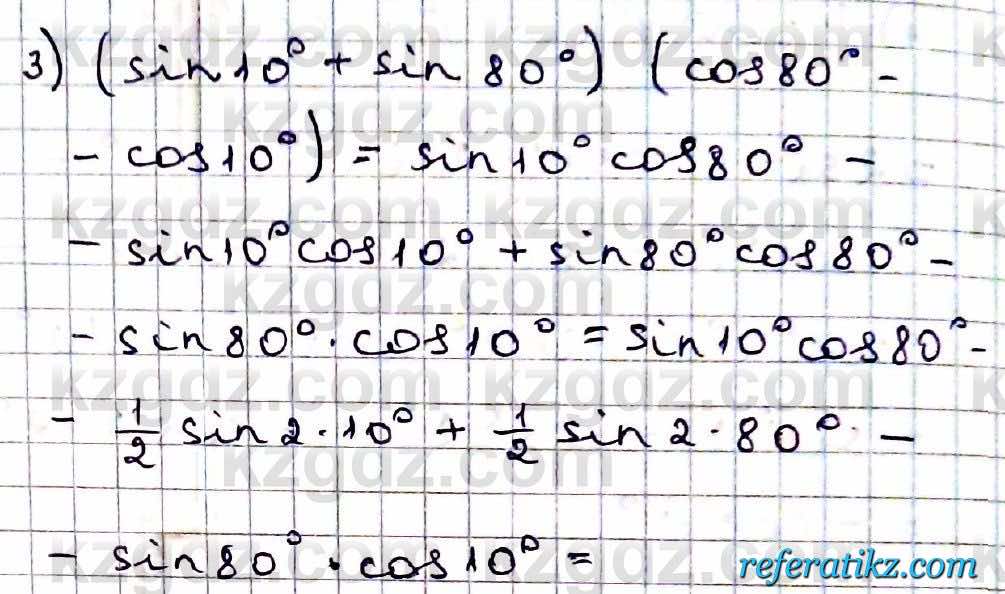 3) (sin 10° + sin 80°) (cos 80° -
- cos 10°) = sin 10° cos 80° -
- sin 10° cos 10° + sin 80° cos 80° -
- sin 80° · cos 10° = sin 10° cos 80° -
- 1/2 sin 2 · 10° + 1/2 sin 2 · 80° -
- sin 80° · cos 10° =
kzgdz.com
referatikz.com